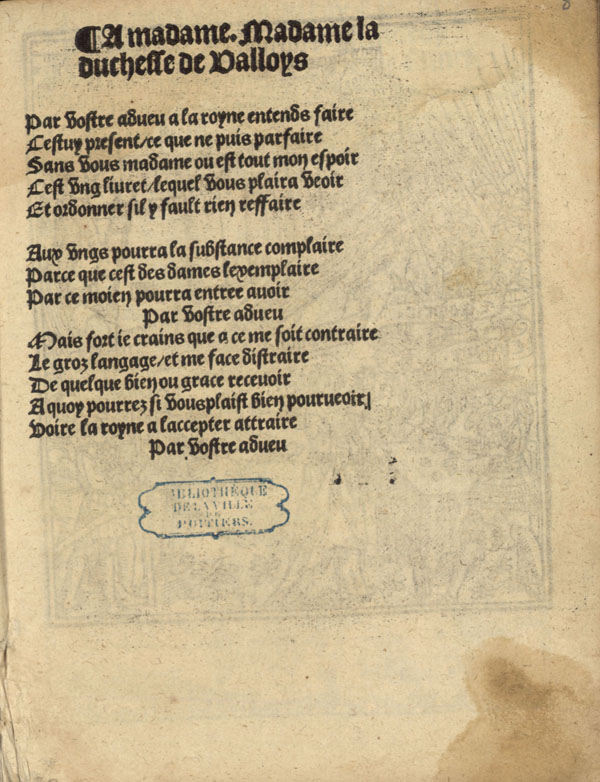 ¶A madame. Madame la
duchesse de Valloys
Par vostre adveu a la royne entends faire
Cestuy present/ce que ne puis parfaire
Sans vous madame ou est tout mon espoir
Cest vng liuret/lequel vous plaira veoir
Et ordonner sil y fault rien reffaire
Aux vngs pourra la substance complaire
Parce que cest des dames lexemplaire
Par ce moien pourra entree auoir
Par vostre adueu
Mais fort ie crains que a ce me soit contraire
Le groz langage/et me face distraire
De quelque bien ou grace receuoir
A quoy pourrez si vousplaist bien pourueoir
Voire la royne a laccepter attraire
Par vostre adueu
BIBLIOTHÈQUE
DE LA VILLE
DE
POITIERS.